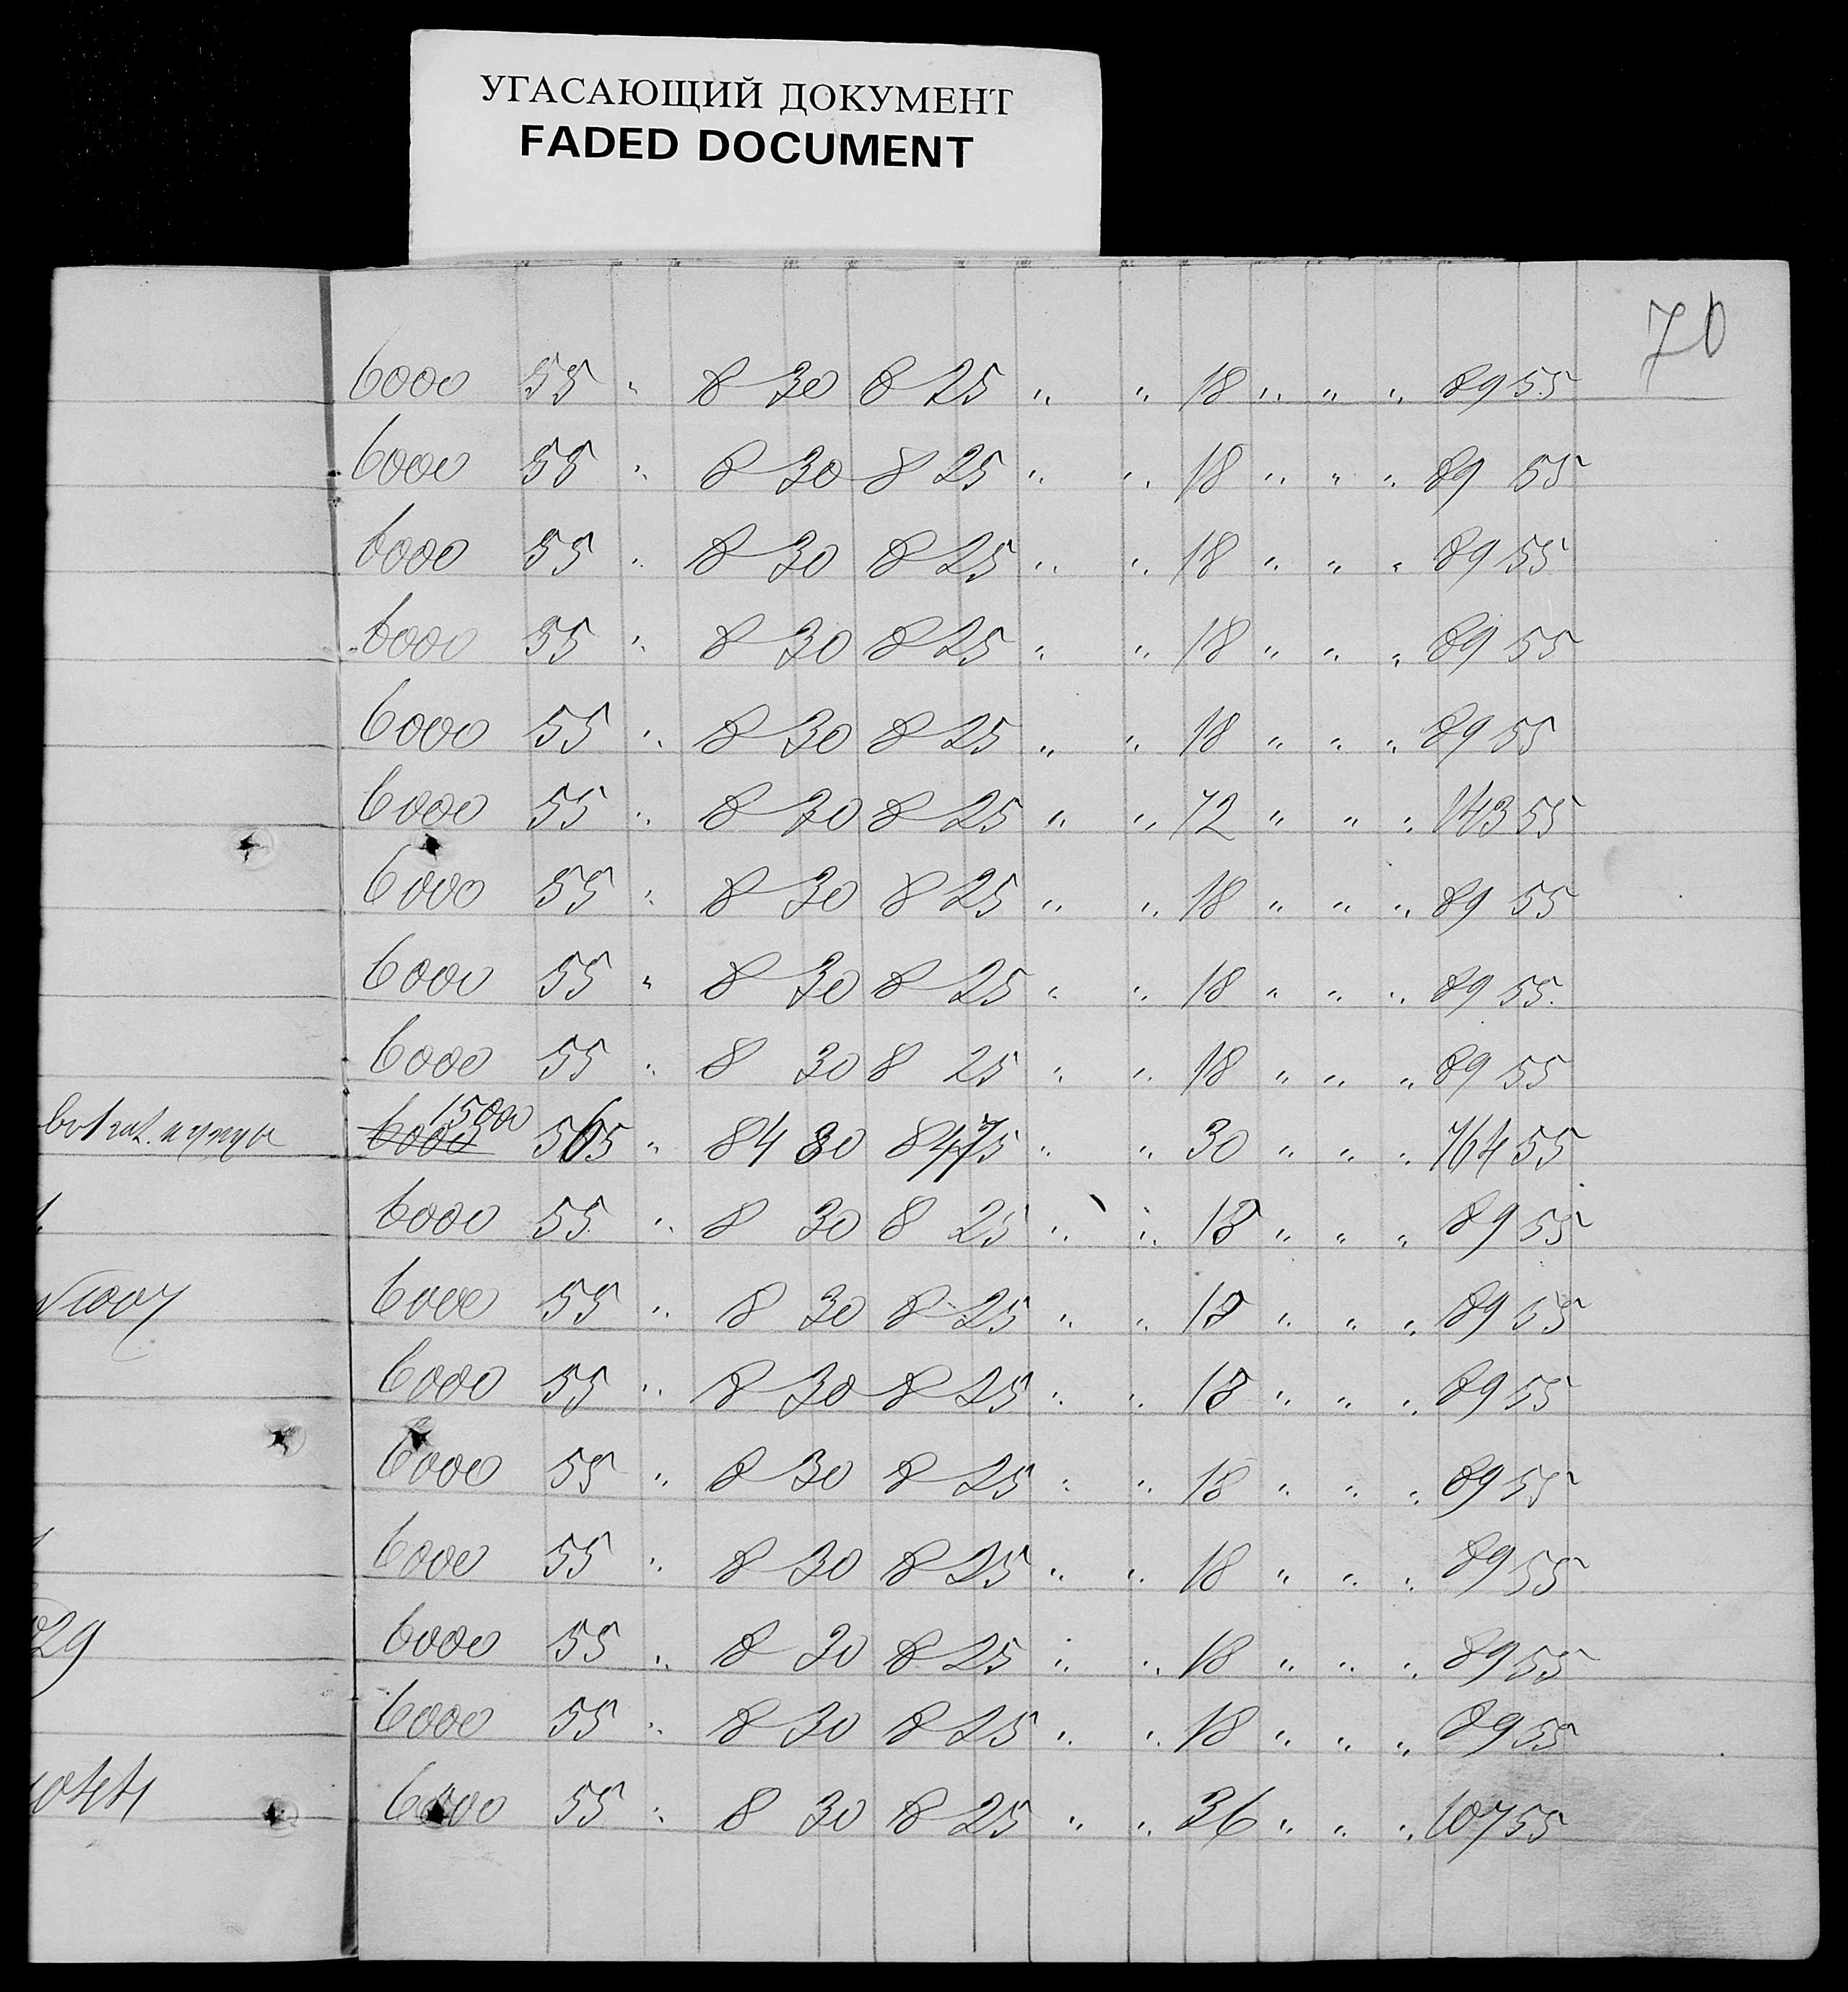 УГАСАЮЩИЙ ДОКУМЕНТ
FADED DOCUMENT
70
6000 55 " 8 30 8 25 " " 18 " " " 89 55
6000 55 " 8 30 8 25 " " 18 " " " 89 55
6000 55 " 8 30 8 25 " " 18 " " " 89 55
6000 55 " 8 30 8 25 " " 18 " " " 89 55
6000 55 " 8 30 8 25 " " 18 " " " 89 55
6000 55 " 8 30 8 25 " " 72 " " " 143 55
6000 55 " 8 30 8 25 " " 18 " " " 89 55
6000 55 " 8 30 8 25 " " 18 " " " 89 55.
6000 55 " 8 30 8 25 " " 18 " " " 89 55
15000
6000 565 " 84 80 84 75 " " 30 " " " 764 55
6000 55 " 8 30 8 25 " " 18 " " " 89 55
1007 6000 55 " 8 30 8 25 " " 18 " " " 89 55
6000 55 " 8 30 8 25 " " 18 " " " 89 55
6000 55 " 8 30 8 25 " " 18 " " " 89 55
6000 55 " 8 30 8 25 " " 18 " " " 89 55
29 6000 55 " 8 30 8 25 " " 18 " " " 89 55
6000 55 " 8 30 8 25 " " 18 " " " 89 55
044 6000 55 " 8 30 8 25 " " 36 " " " 107 55